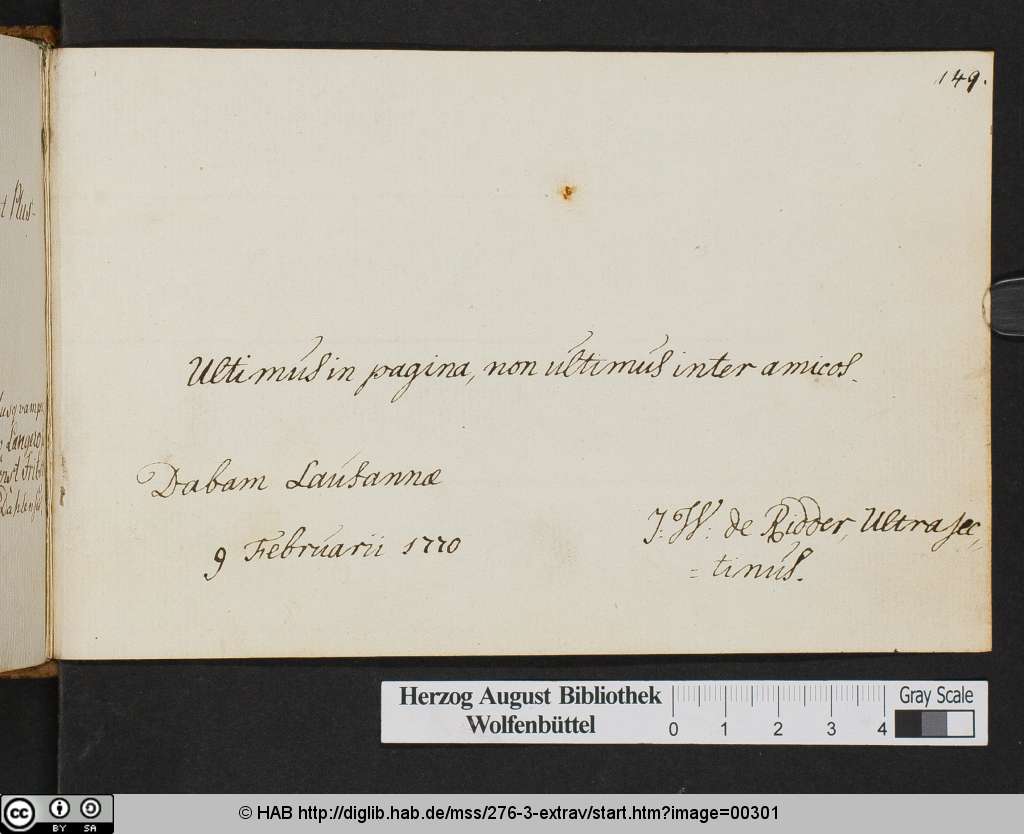 149.
t Plus-
Ultimus in pagina, non ultimus inter amicos.
Dabam Lausannæ
9 Februarii 1770
J. W. de Ridder, Ultrajec„
= tinus.
Herzog August Bibliothek
Wolfenbüttel
0 1 2 3 4
Gray Scale
cc BY SA
© HAB http://diglib.hab.de/mss/276-3-extrav/start.htm?image=00301